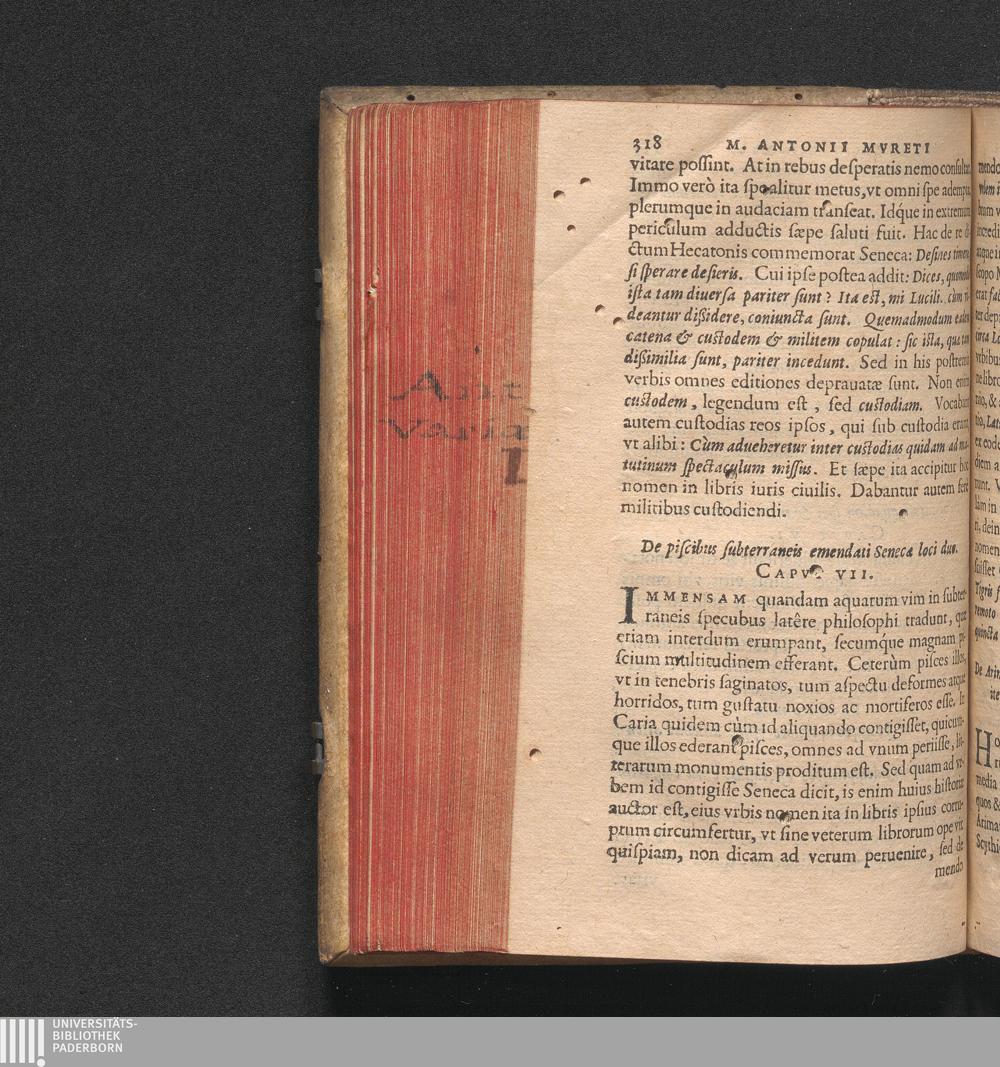 318 M. ANTONII MVRETI
vitare poſſint. At in rebus deſperatis nemo conſultat.
Immo verò ita ſpoalitur metus, vt omni ſpe adempta,
plerumque in audaciam tranſeat. Idq́ue in extremum
periculum adductis ſæpe ſaluti fuit. Hac de re di-
ctum Hecatonis commemorat Seneca: Deſines timere
ſi ſperare deſieris. Cui ipſe poſtea addit: Dices, quomodo
iſta tam diuerſa pariter ſunt? Ita eſt, mi Lucili. cùm vi-
deantur dißidere, coniuncta ſunt. Quemadmodum eadem
catena & cuſtodem & militem copulat: ſic iſta, quæ tam
dißimilia ſunt, pariter incedunt. Sed in his poſtremis
verbis omnes editiones deprauatæ ſunt. Non enim
cuſtodem, legendum eſt, ſed cuſtodiam. Vocabant
autem cuſtodias reos ipſos, qui ſub cuſtodia erant,
vt alibi: Cùm adueheretur inter cuſtodias quidam ad ma-
tutinum ſpectaculum miſſus. Et ſæpe ita accipitur hoc
nomen in libris iuris ciuilis. Dabantur autem ferè
militibus cuſtodiendi.
De piſcibus ſubterraneis emendati Senecæ loci duo.
CAPVT VII.
IMMENSAM quandam aquarum vim in ſubter-
raneis ſpecubus latêre philoſophi tradunt, quæ
etiam interdum erumpant, ſecumq́ue magnam pi-
ſcium multitudinem efferant. Ceterùm piſces illos,
vt in tenebris ſaginatos, tum aſpectu deformes atque
horridos, tum guſtatu noxios ac mortiferos eſſe. In
Caria quidem cùm id aliquando contigiſſet, quicun-
que illos ederant piſces, omnes ad vnum periiſſe, lit-
terarum monumentis proditum eſt. Sed quam ad vr-
bem id contigiſſe Seneca dicit, is enim huius hiſtoriæ
auctor eſt, eius vrbis nomen ita in libris ipſius corru-
ptum circumfertur, vt ſine veterum librorum ope vix
quiſpiam, non dicam ad verum peruenire, ſed de
mendo
Ant
Varia
L
UNIVERSITÄTS-
BIBLIOTHEK
PADERBORN